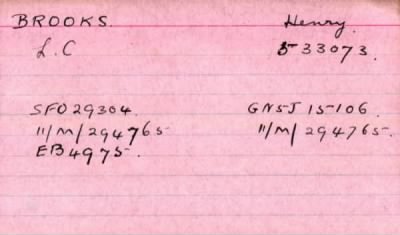 BROOKS. Henry.
L.C 533073.
SFO 29304. GNSJ 15-106.
11/M/294765 11/M/294765.
EB4975.